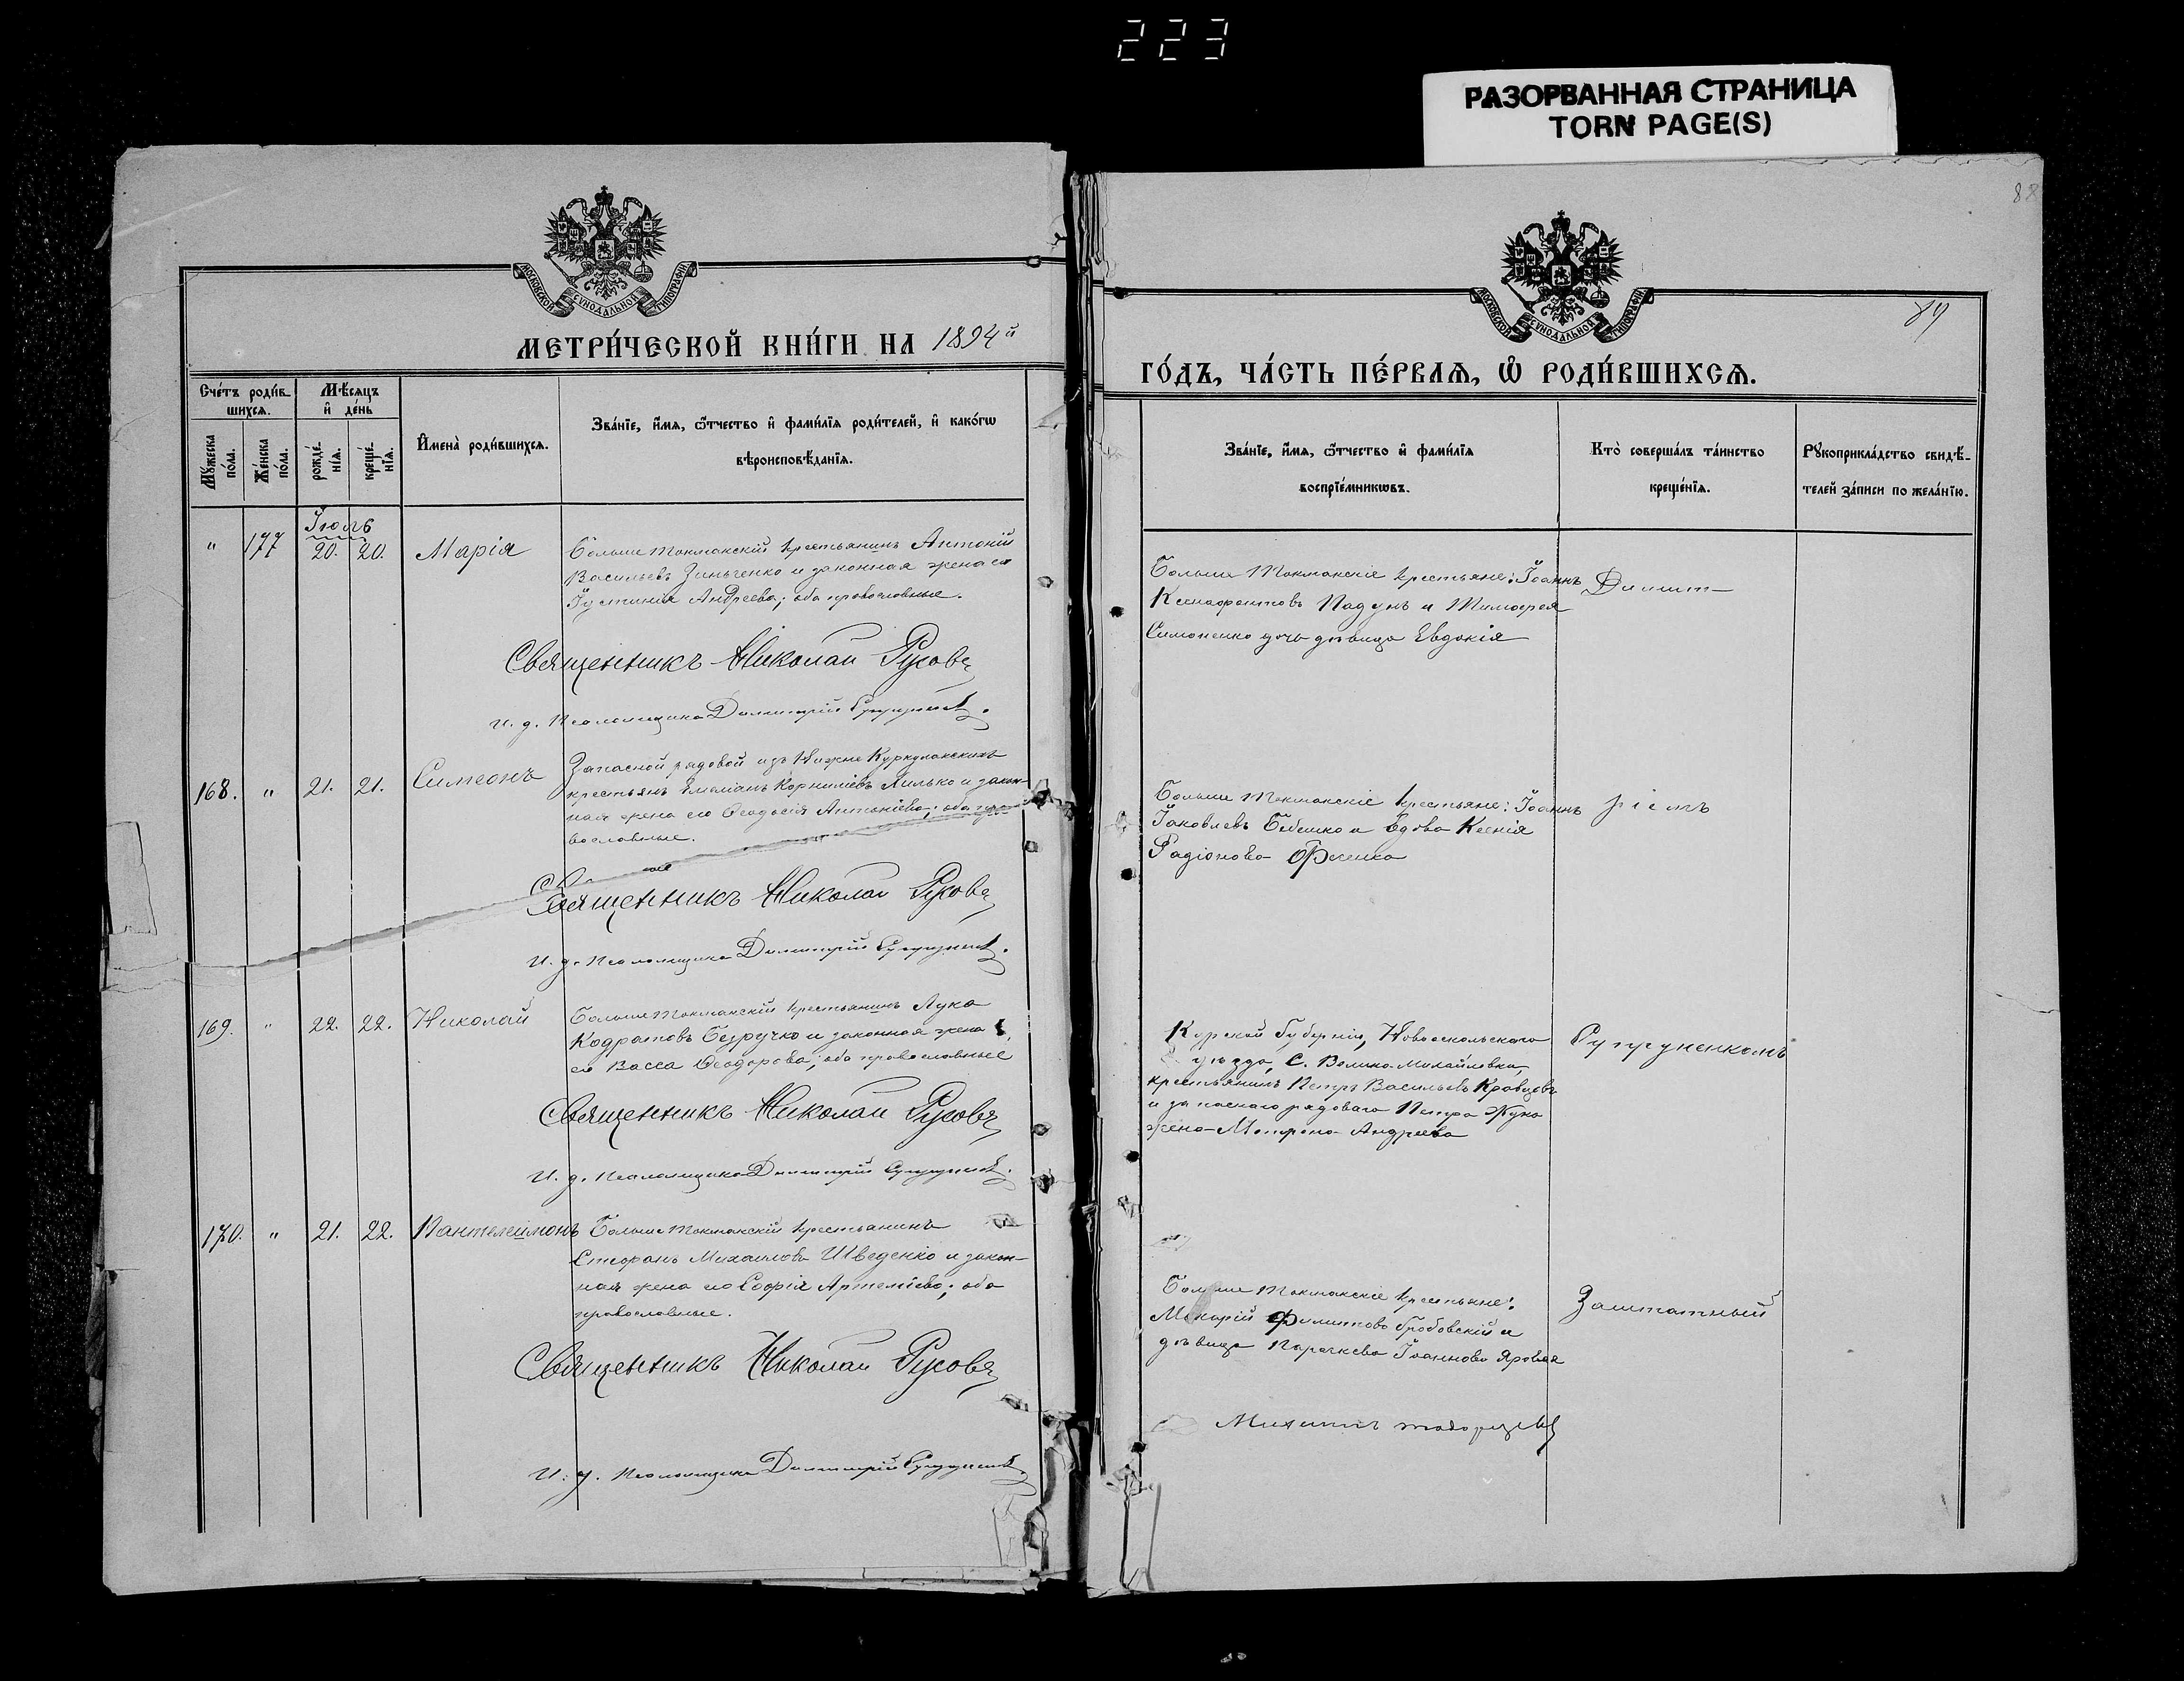 223
РАЗОРВАННАЯ СТРАНИЦА
TORN PAGE(S)
88
МОСКОВСКОЙ СѴНОДАЛЬНОЙ ТИПОГРАФІИ
МЕТРИ́ЧЕСКОЙ КНИ́ГИ НА 1894й
Сче́тъ роди́в-
шихсѧ.
Мѣ́сѧцъ
и҆ де́нь
Мꙋ́жеска
по́ла.
Же́нска
по́ла.
рожде́-
нїѧ.
креще́-
нїѧ.
И҆мена̀ роди́вшихсѧ.
Зва́нїе, и҆́мѧ, ѻ҆́тчество и҆ фами́лїѧ роди́телей, и҆ како́гѡ
вѣроисповѣ́данїѧ.
Іюль
" 177 20. 20. Марія
Больше Токмакскій крестьянинъ Антоній
Васильевъ Зинченко и законная жена его
Іустинія Андреева; оба православные.
Священникъ Николай Русовъ
И. д. Псаломщика Димитрій
168. " 21. 21. Симеонъ
Запасной рядовой изъ Нижне Куркулакскихъ
крестьянъ Емеліанъ Корниліевъ Лилько и закон-
ная жена его Ѳеодосія Антоніева; оба пра-
вославные.
Священникъ Николай Русовъ
И. д. Псаломщика Димитрій
169. " 22. 22. Николай
Больше Токмакскій крестьянинъ Лука
Кодратовъ Безручко и законная жена
его Васса Ѳеодорова; оба православные
Священникъ Николай Русовъ
И. д. Псаломщика Димитрій
170. " 21. 22. Пантелеимонъ
Больше Токмакскій крестьянинъ
Стефанъ Михаиловъ Шведенко и закон-
ная жена его Софія Артеміева; оба
православные.
Священникъ Николай Русовъ
И. д. Псаломщика Димитрій
МОСКОВСКОЙ СѴНОДАЛЬНОЙ ТИПОГРАФІИ
89
ГО́ДЪ, ЧА́СТЬ ПЕ́РВАѦ, Ѽ РОДИ́ВШИХСѦ.
Зва́нїе, и҆́мѧ, ѻ҆́тчество и҆ фами́лїѧ
воспрїе́мникѡвъ.
Кто̀ соверша́лъ та́инство
креще́нїѧ.
Рꙋкоприкла́дство свидѣ́-
телей за́писи по жела́нїю.
Больше Токмакскіе крестьяне: Іоаннъ
Ксенофонтовъ Падунъ и Тимофея
Симоненко дочь дѣвица Евдокія
Димит-
Больше Токмакскіе крестьяне: Іоаннъ
Іаковлевъ Бебешко и вдова Ксенія
Радіонова
ріемъ
Курской Губерніи, Новооскольскаго
уѣзда, С. Велико-Михайловки,
крестьянинъ Петръ Васильевъ Кравцовъ
и запаснаго рядоваго Петра Жука
жена Матрона Андреева
Супруненкомъ
Больше Токмакскіе крестьяне:
Макарій Филиповъ Гробовскій и
дѣвица Параскева Іоаннова Яровая
Заштатный